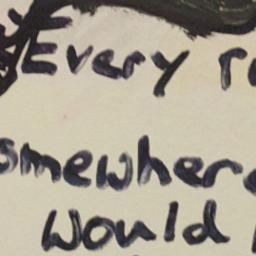 Every r
omewhere
would